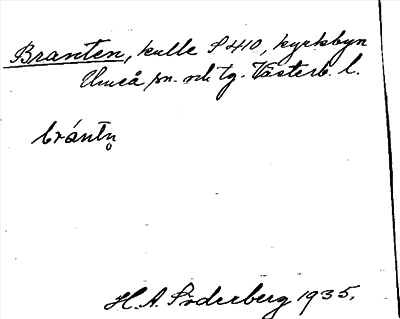 Branten, kulle S 410, kyrkbyn
Umeå sn. och tg. Västerb. l.
brántn̥
H. A. Söderberg 1935.